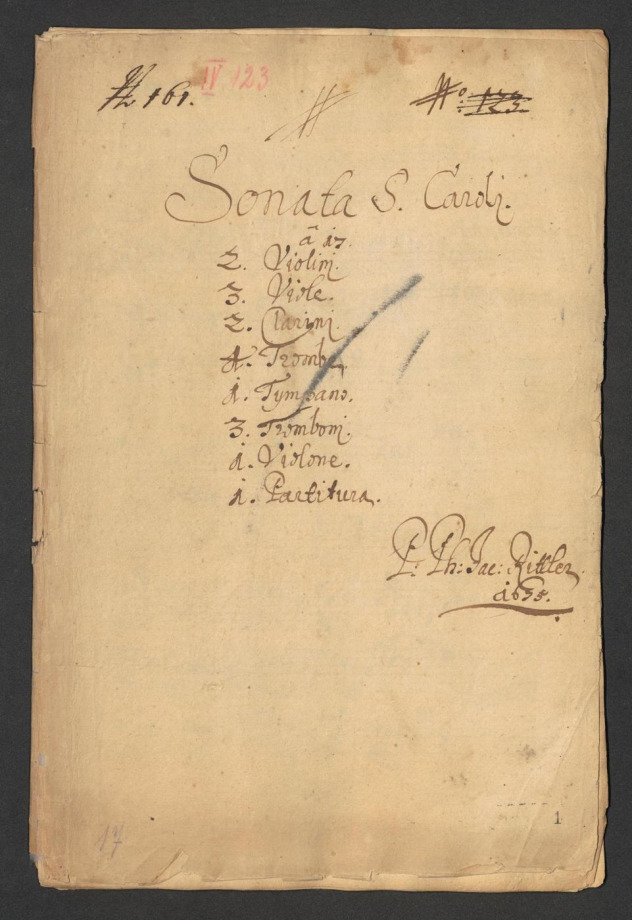 161. IV 123 No: 123.
Sonata S. Caroli.
à 17.
2. Violini.
3. Viole.
2. Clarini.
4. Trombe.
1. Tympano.
3. Tromboni.
1. Violone.
1. Partitura.
P: Ph: Jac: Rittler
17
1